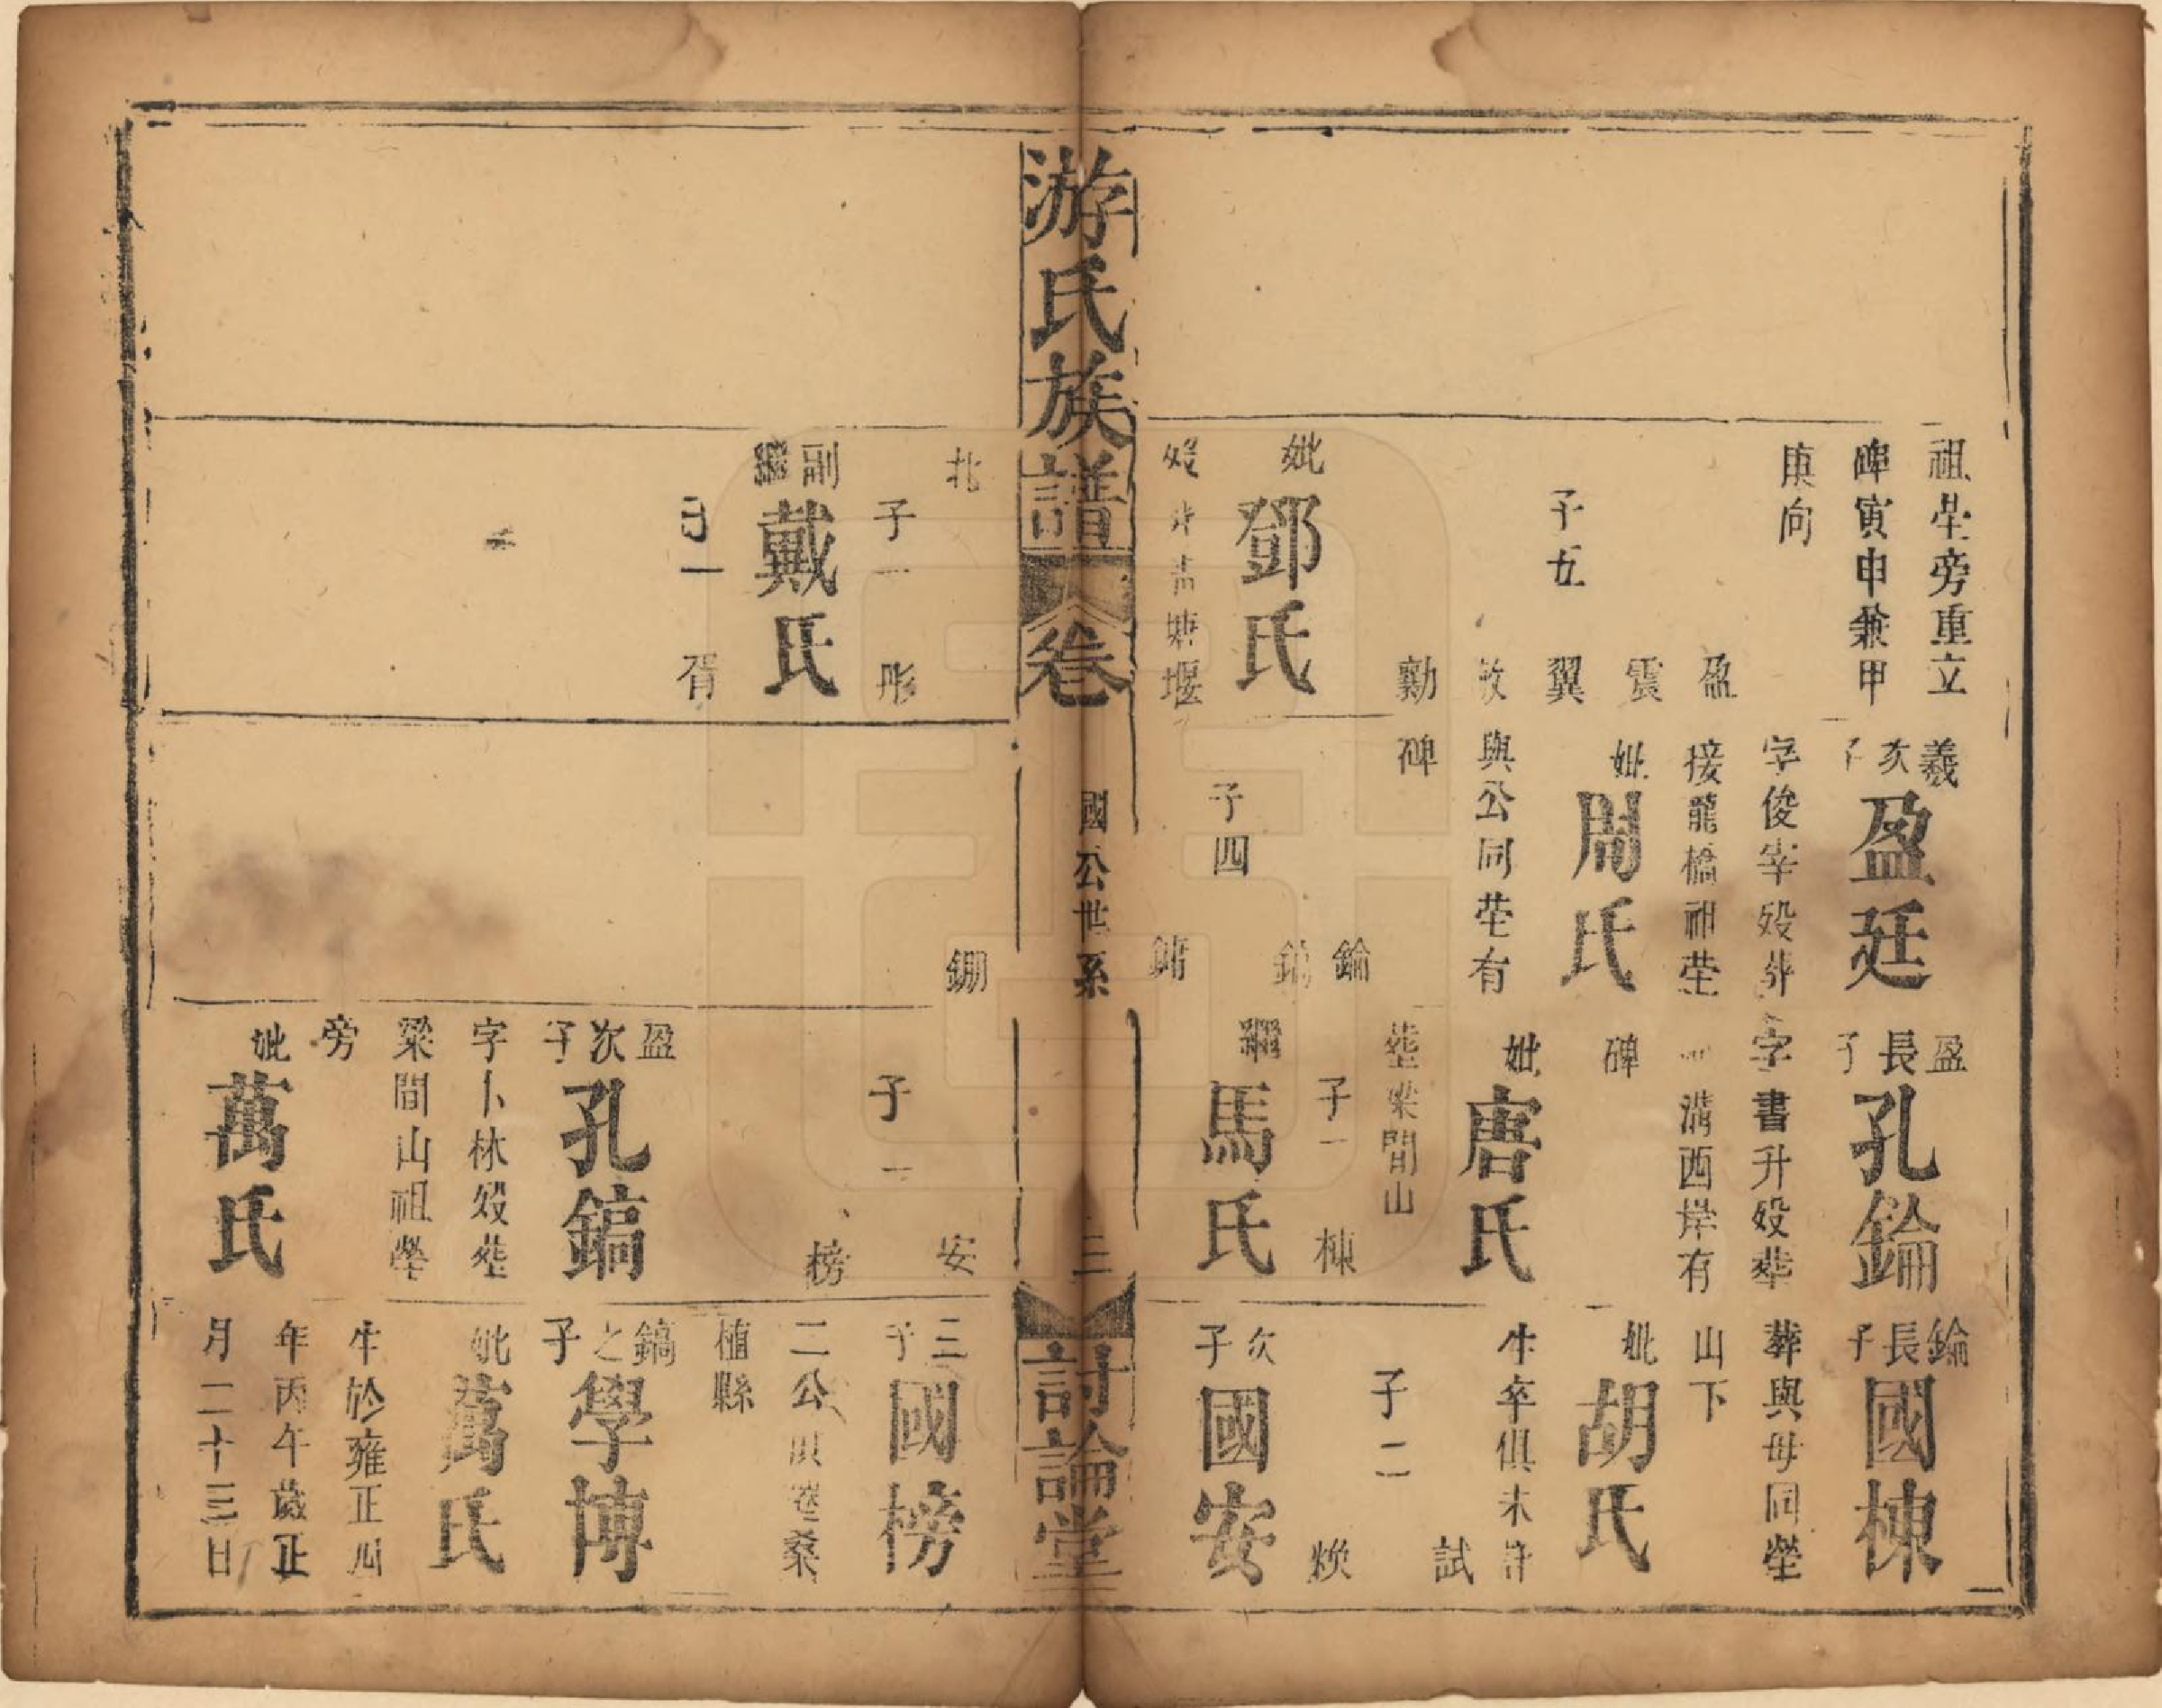 祖塋旁重立
碑寅申兼甲
庚向
子五
盈
震
翼
勷
妣
鄧氏
塘堰
羲
次
子
盈廷
字俊宰歿葬
接龍橋祖塋
妣
周氏
與公同塋有
碑
子四
錀
鎬
鏞
盈
長
子
孔錀
字書升歿葬
溝西岸有
碑
妣
唐氏
葬梁間山
子一
棟
繼
馬氏
錀
長
子
國棟
葬與母同塋
山下
妣
胡氏
生卒俱未詳
子二
試
煥
次
子
國安
游氏族譜
卷
國公世系
三
討論堂
北
子一
彤
副
繼
戴氏
子一
胥
鎙
安
子一
榜
盈
次
子
孔鎬
字卜林歿葬
梁間山祖塋
旁
妣
萬氏
三
子
國榜
二公俱卷桑
植縣
鎬
之
子
學博
妣
萬氏
生於雍正四
年丙午歲正
月二十三日